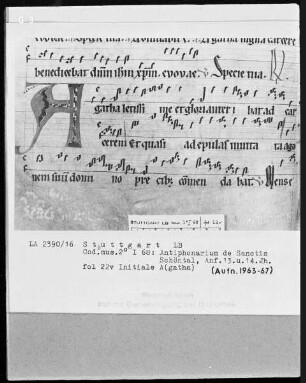 benedicebat dnm ihm xpm. evovae. Specie tua.
Agatha letissi me et glorianter ibat ad car
cerem et quasi ad epulas invita ta ago
nem suum domi no pre cib; comen da bat. Mense
LA 2390/16 Stuttgart LB
Cod.mus.2° I 68: Antiphonarium de Sanctis
Schöntal, Anf.13.u.14.Jh.
fol 22v Initiale A(gatha) (Aufn.1963-67)